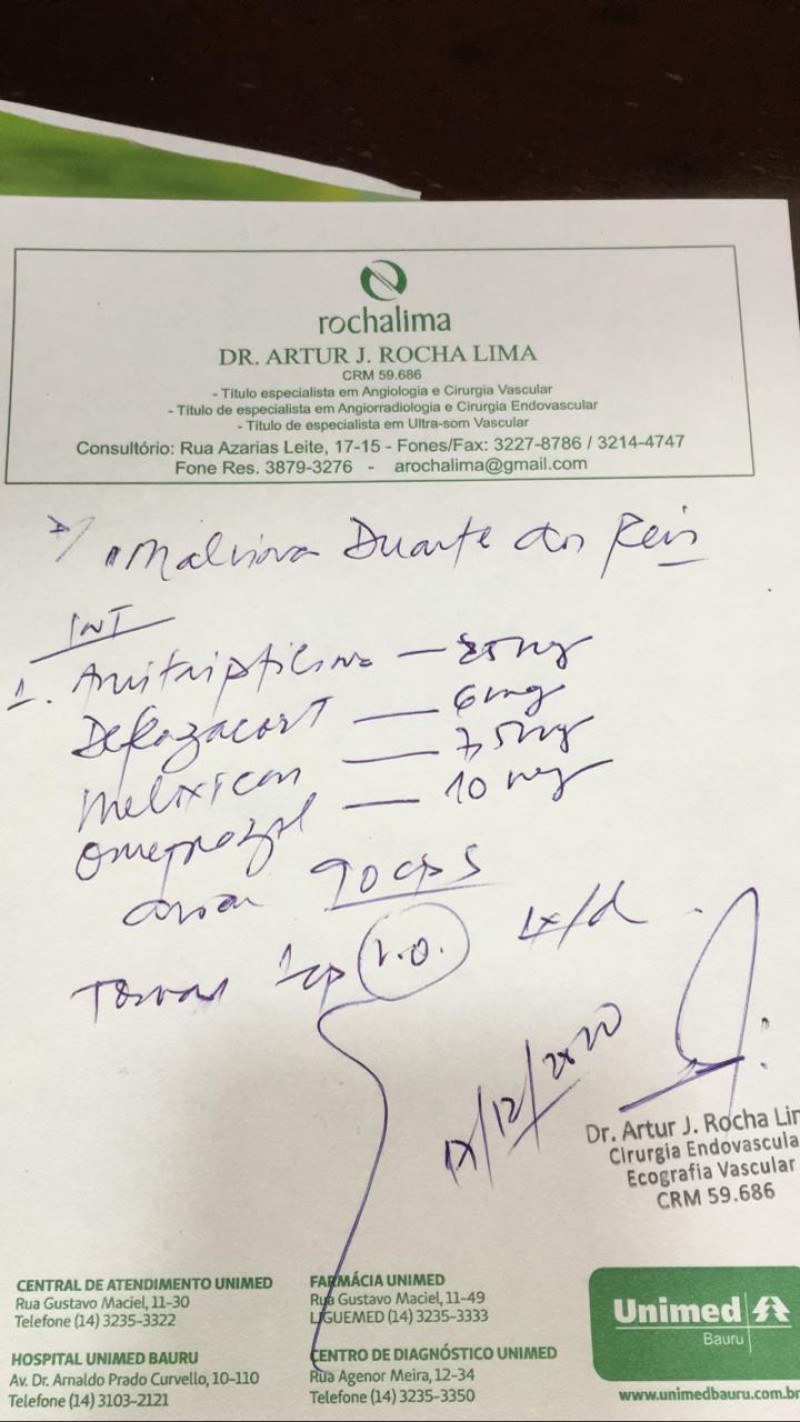 rochalima
DR. ARTUR J. ROCHA LIMA
CRM 59.686
- Título especialista em Angiologia e Cirurgia Vascular
- Título de especialista em Angiorradiologia e Cirurgia Endovascular
- Título de especialista em Ultra-som Vascular
Consultório: Rua Azarias Leite, 17-15 - Fones/Fax: 3227-8786 / 3214-4747
Fone Res. 3879-3276 - arochalima@gmail.com
Duarte dos Reis
INT
1. Amitriptilina — 25mg
Deflazacort — 6mg
Meloxican — 7,5mg
Omeprazol — 10 mg
90 cps
Tomar 1cp V.O. 1x/d
/12/2020
Dr. Artur J. Rocha Lim
Cirurgia Endovascula
Ecografia Vascular
CRM 59.686
CENTRAL DE ATENDIMENTO UNIMED
Rua Gustavo Maciel, 11-30
Telefone (14) 3235-3322
FARMÁCIA UNIMED
Rua Gustavo Maciel, 11-49
LIGUEMED (14) 3235-3333
HOSPITAL UNIMED BAURU
Av. Dr. Arnaldo Prado Curvello, 10-110
Telefone (14) 3103-2121
CENTRO DE DIAGNÓSTICO UNIMED
Rua Agenor Meira, 12-34
Telefone (14) 3235-3350
Unimed
Bauru
www.unimedbauru.com.br